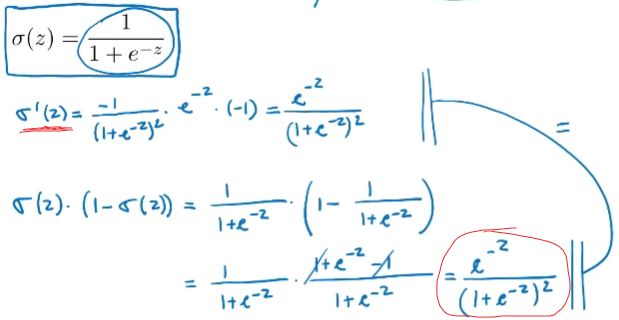 σ(z) = 1 / (1 + e^{-z})
σ'(z) = -1 / (1+e^{-z})^2 · e^{-z} · (-1) = e^{-z} / (1+e^{-z})^2
=
σ(z) · (1-σ(z)) = 1 / (1+e^{-z}) · (1 - 1 / (1+e^{-z}))
= 1 / (1+e^{-z}) · (1+e^{-z}-1) / (1+e^{-z}) = e^{-z} / (1+e^{-z})^2